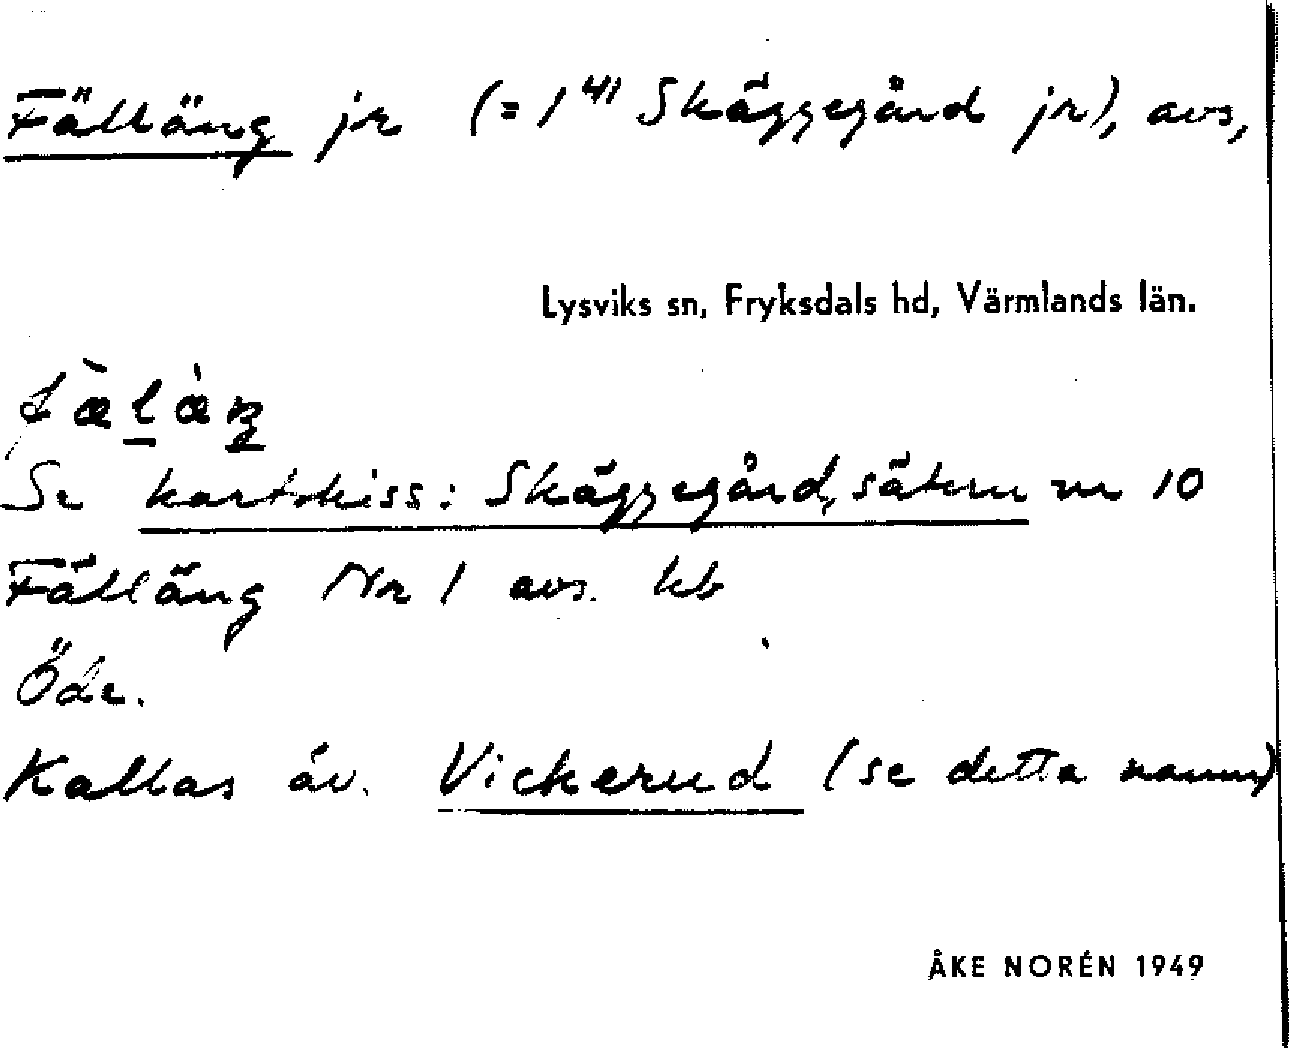 Fälläng jr (=1⁴¹ Skäggegård jr), avs,
Lysviks sn, Fryksdals hd, Värmlands län.
Se kartskiss: Skäggegård, sätern nr 10
Fälläng Nr 1 avs. kb
Öde.
Kallas äv. Vickerud (se detta namn)
ÅKE NORÉN 1949